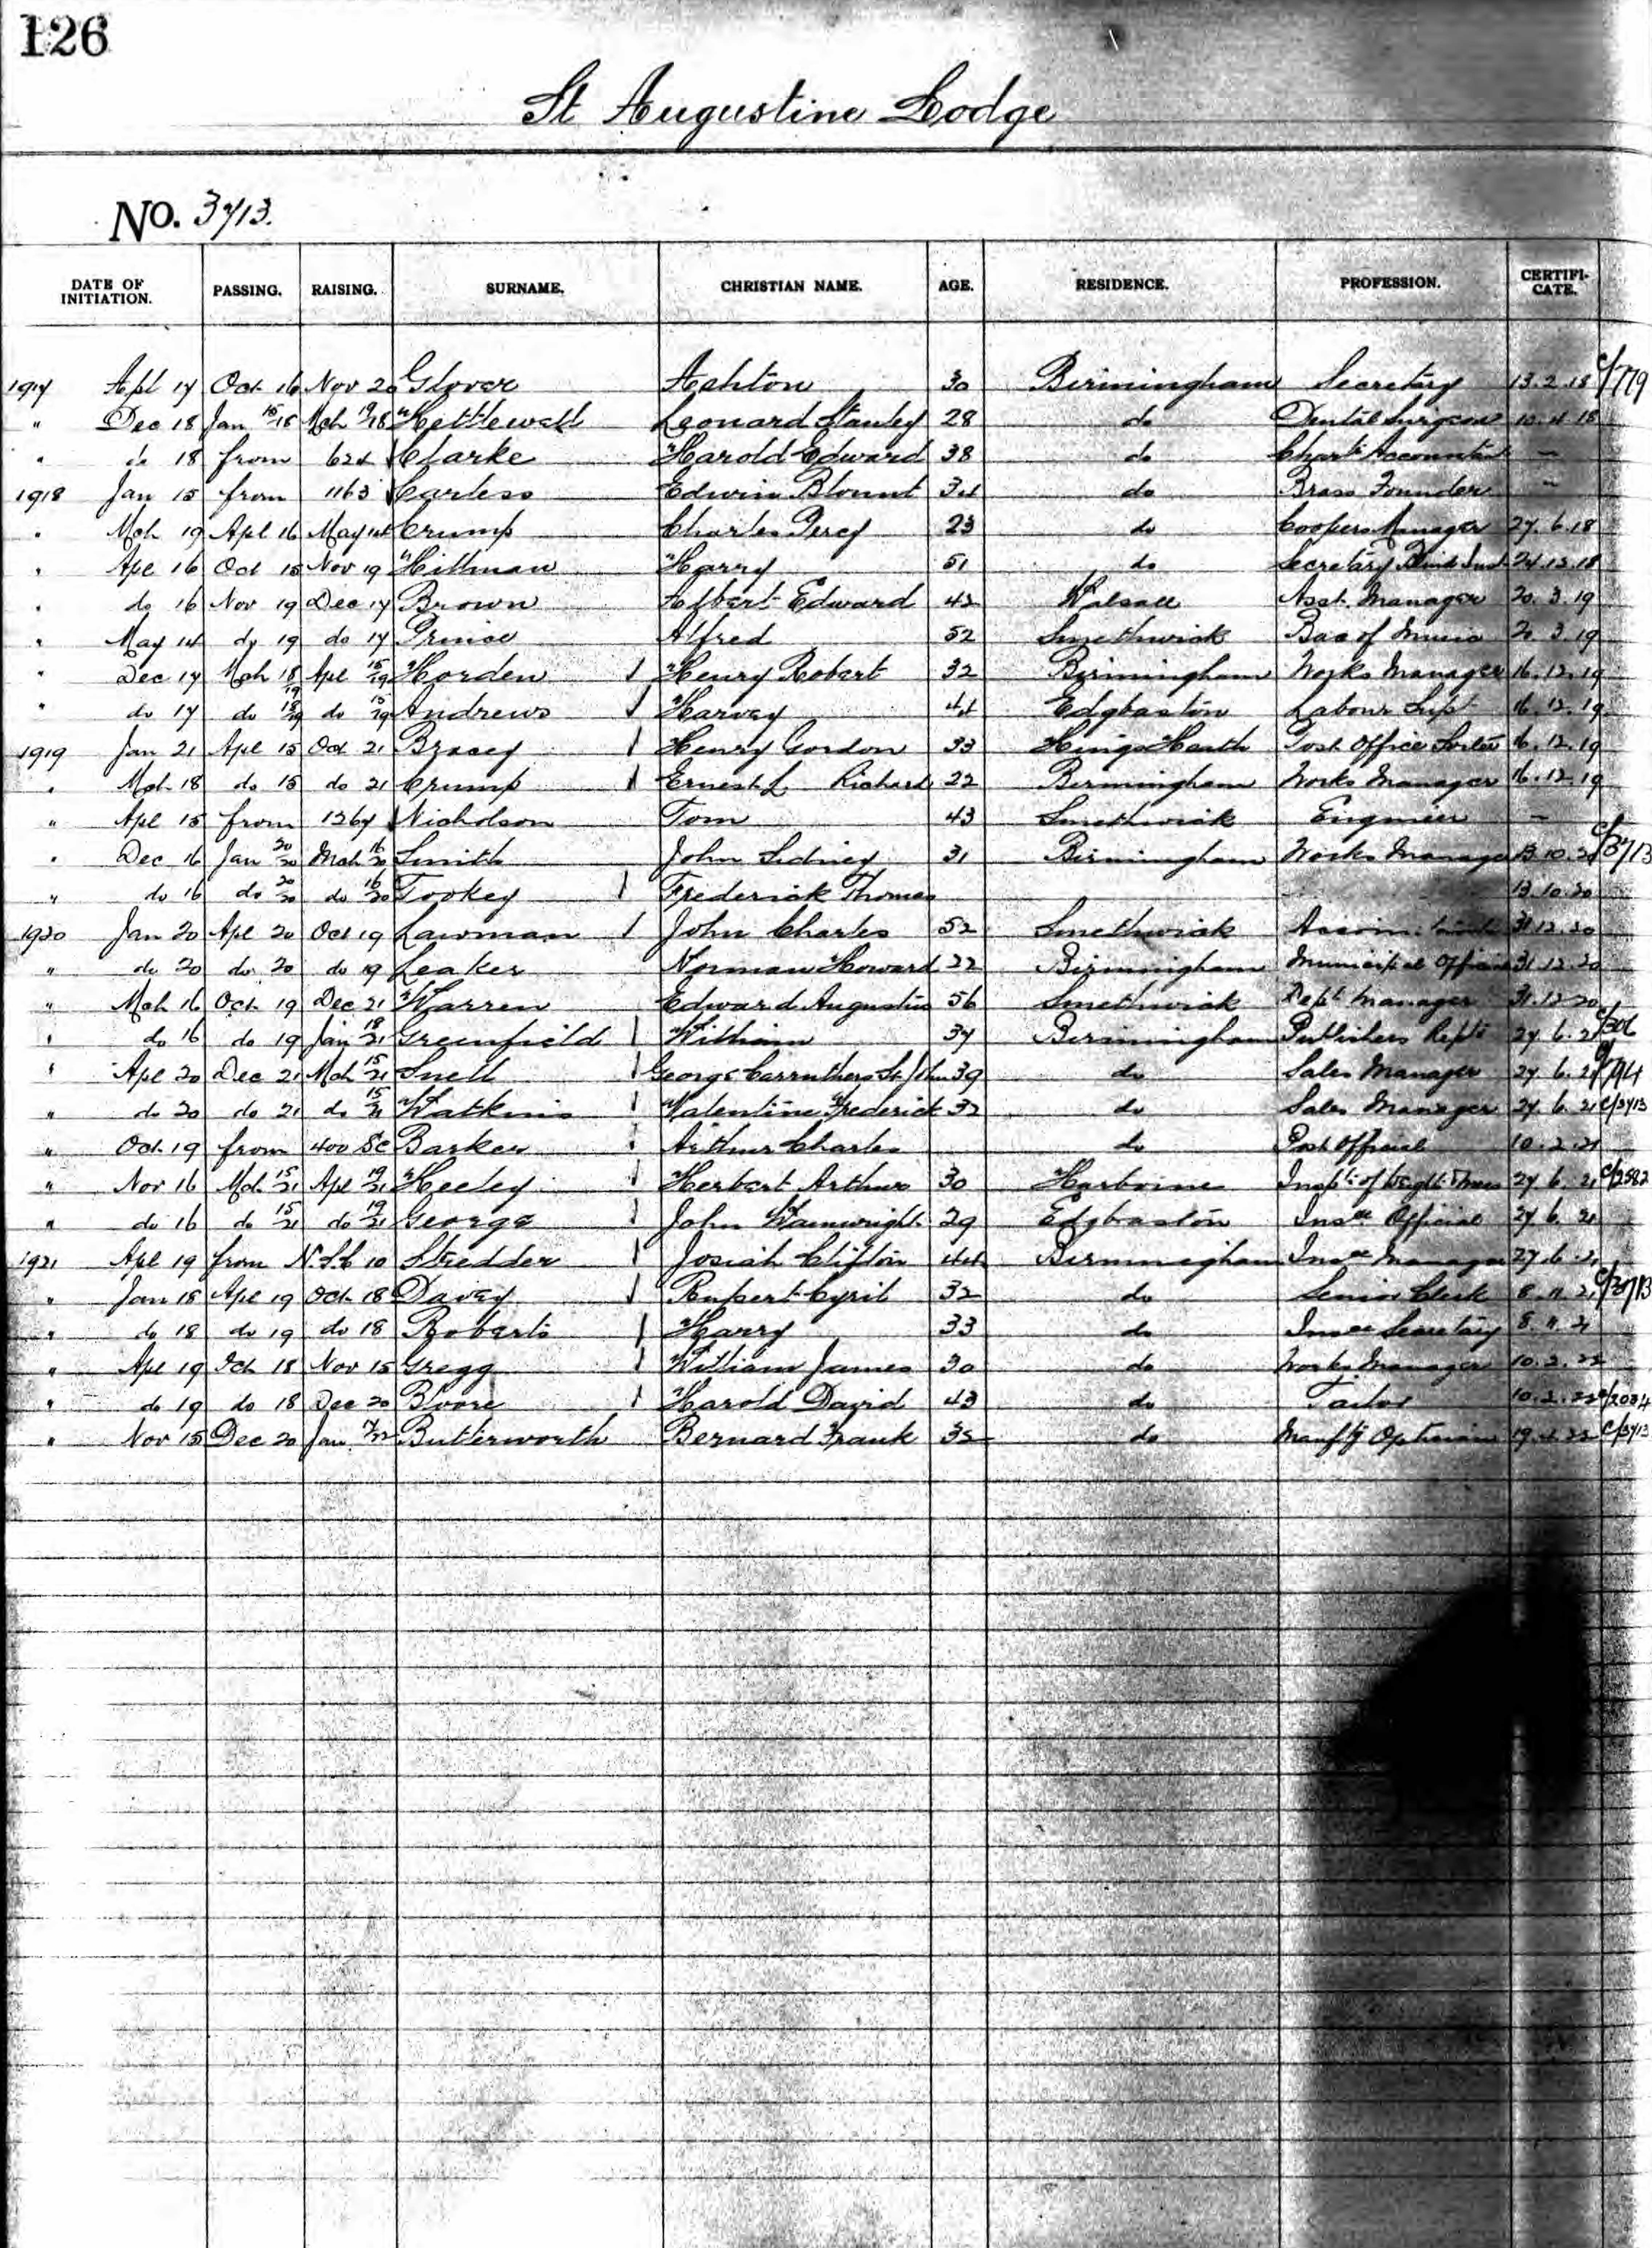 126
St Augustine Lodge
No. 3713.
DATE OF INITIATION. PASSING. RAISING. SURNAME. CHRISTIAN NAME. AGE. RESIDENCE. PROFESSION. CERTIFI-CATE.
1917 Apl 17 Oct 16 Nov 20 Glover Ashton 30 Birmingham Secretary 13.2.18 C/779
" Dec 18 Jan 15/18 Mch 19/18 Kettlewell Leonard Stanley 28 do Dental Surgeon 10.4.18
" do 18 from 624 Clarke Harold Edward 38 do Chartd Accountant —
1918 Jan 15 from 1163 Carless Edwin Blount 34 do Brass Founder —
" Mch 19 Apl 16 May 14 Crump Charles Percy 23 do Coopers Manager 27.6.18
" Apl 16 Oct 15 Nov 19 Hillman Harry 51 do Secretary Blind Inst 24.12.18
" do 16 Nov 19 Dec 17 Brown Albert Edward 42 Walsall Asst. Manager 20.3.19
" May 14 do 19 do 17 Prince Alfred 52 Smethwick Bac of Music 20.3.19
" Dec 17 Mch 18/19 Apl 15/19 Horden Henry Robert 32 Birmingham Works Manager 16.12.19
" do 17 do 18/19 do 15/19 Andrews Harvey 44 Edgbaston Labour Supt 16.12.19
1919 Jan 21 Apl 15 Oct 21 Bracey Henry Gordon 33 Kings Heath Post Office Sorter 16.12.19
" Mch 18 do 15 do 21 Crump Ernest L Richard 22 Birmingham Works Manager 16.12.19
" Apl 15 from 1267 Nicholson Tom 43 Smethwick Engineer —
" Dec 16 Jan 20/20 Mch 16/20 Smith John Sidney 31 Birmingham Works Manager 13.10.20 C/3713
" do 16 do 20/20 do 16/20 Tookey Frederick Thomas 13.10.20
1920 Jan 20 Apl 20 Oct 19 Lawman John Charles 52 Smethwick 31.12.20
" do 20 do 20 do 19 Leaker Norman Howard 22 Birmingham Municipal Officer 31.12.20
" Mch 16 Oct 19 Dec 21 Warren Edward Augustus 56 Smethwick Dept Manager 31.12.20
" do 16 do 19 Jan 18/21 Greenfield William 37 Birmingham Publishers Repte 27.6.21 C/306
" Apl 20 Dec 21 Mch 15/21 Snell George Carruthers St John 39 do Sales Manager 27.6.21 C/794
" do 20 do 21 do 15/21 Watkins Valentine Frederick 32 do Sales Manager 27.6.21 C/3713
" Oct 19 from 400 SC Barker Arthur Charles do Post Official 10.2.21
" Nov 16 Mch 15/21 Apl 19/21 Heeley Herbert Arthur 30 Harborne Inspr of Weights 27.6.21 C/2582
" do 16 do 15/21 do 19/21 George John Wainwright 29 Edgbaston Insce Official 27.6.21
1921 Apl 19 from N.S.C 10 Stredder Josiah Clifton 44 Birmingham Insce Manager 27.6.21
" Jan 18 Apl 19 Oct 18 Davey Rupert Cyril 32 do Senior Clerk 8.11.21 C/3713
" do 18 do 19 do 18 Roberts Harry 33 do Insce Secretary 8.11.21
" Apl 19 Oct 18 Nov 15 Gregg William James 30 do Works Manager 10.2.22
" do 19 do 18 Dec 20 Bloore Harold David 43 do Tailor 10.2.22 C/2034
" Nov 15 Dec 20 Jan 17/22 Butterworth Bernard Frank 32 do Manftg Optician 19.4.22 C/3713